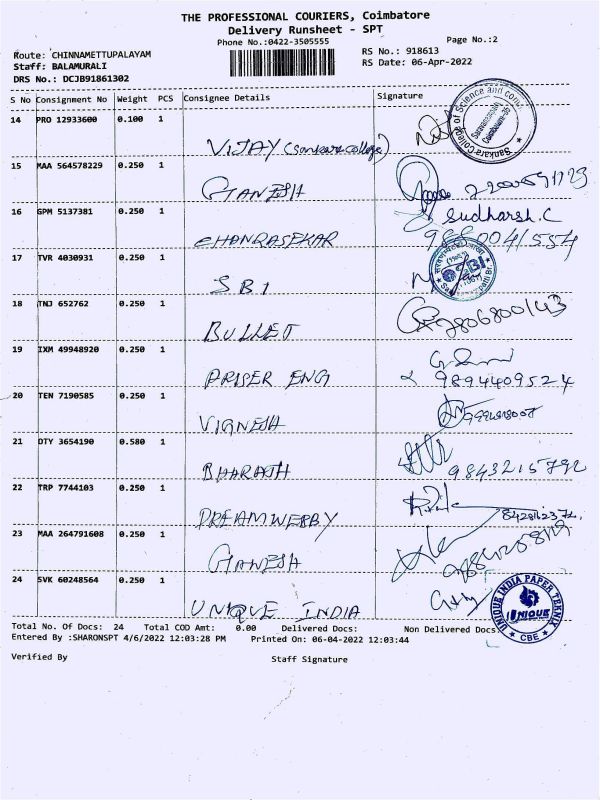 THE PROFESSIONAL COURIERS, Coimbatore
Delivery Runsheet - SPT
Phone No.:0422-3505555
Page No.:2
Route: CHINNAMETTUPALAYAM
RS No.: 918613
Staff: BALAMURALI
RS Date: 06-Apr-2022
DRS No.: DCJB91861302
S No Consignment No Weight PCS Consignee Details Signature
14 PRO 12933600 0.100 1
VIJAY (Sankara college)
Sankara College of Science and
Saravanampatty
Coimbatore-35
15 MAA 564578229 0.250 1
GANESH
16 GPM 5137381 0.250 1
Sudharsh.C
CHANRASEKAR
9880041554
17 TVR 4030931 0.250 1
SBI
SBI
18 TNJ 652762 0.250 1
BULLET
9806800143
19 IXM 49948920 0.250 1
PRISER ENG
9894409524
20 TEN 7190585 0.250 1
VIGNESH
21 DTY 3654190 0.580 1
BHARATH
9843215792
22 TRP 7744103 0.250 1
DREAMWERBY
23 MAA 264791608 0.250 1
GANESH
24 SVK 60248564 0.250 1
UNIQUE INDIA
UNIQUE INDIA PAPER TEKNIX
UNIQUE
CBE
Total No. Of Docs: 24 Total COD Amt: 0.00 Delivered Docs: Non Delivered Docs:
Entered By :SHARONSPT 4/6/2022 12:03:28 PM Printed On: 06-04-2022 12:03:44
Verified By
Staff Signature